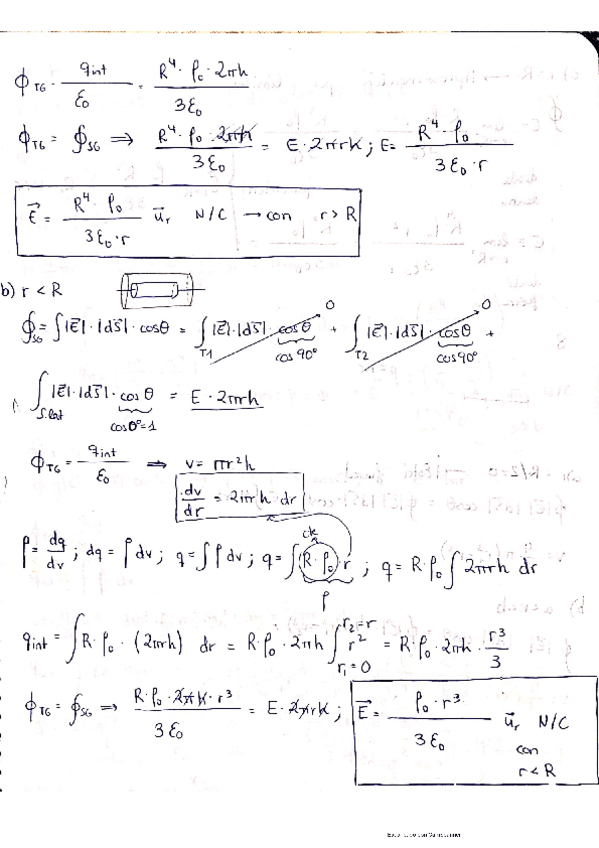 ϕ_TG = qint/ε₀ = R⁴·ρ₀·2πh/3ε₀
ϕ_TG = ∮_SG ⟹ R⁴·ρ₀·2πh/3ε₀ = E·2πrh ; E = R⁴·ρ₀/3ε₀·r
E⃗ = R⁴·ρ₀/3ε₀·r u⃗ᵣ N/C → con r > R
b) r < R
∮_SG = ∫|E⃗|·|dS⃗|·cosθ = ∫_T1 |E⃗|·|dS⃗|·cosθ (cos90°) → 0 + ∫_T2 |E⃗|·|dS⃗|·cosθ (cos90°) → 0 +
∫_S.lat |E⃗|·|dS⃗|·cosθ (cos0°=1) = E·2πrh
ϕ_TG = qint/ε₀ ⟹ v = πr²h
dv/dr = 2πrh dr
ρ = dq/dv ; dq = ρdv ; q = ∫ρdv ; q = ∫(R·ρ₀)·r ; q = R·ρ₀∫2πrh dr
cte
ρ
qint = ∫R·ρ₀·(2πrh) dr = R·ρ₀·2πh ∫_{r₁=0}^{r₂=r} r² = R·ρ₀·2πh·r³/3
ϕ_TG = ∮_SG ⟹ R·ρ₀·2πh·r³/3ε₀ = E·2πrh ; E⃗ = ρ₀·r³/3ε₀ u⃗ᵣ N/C
con
r < R